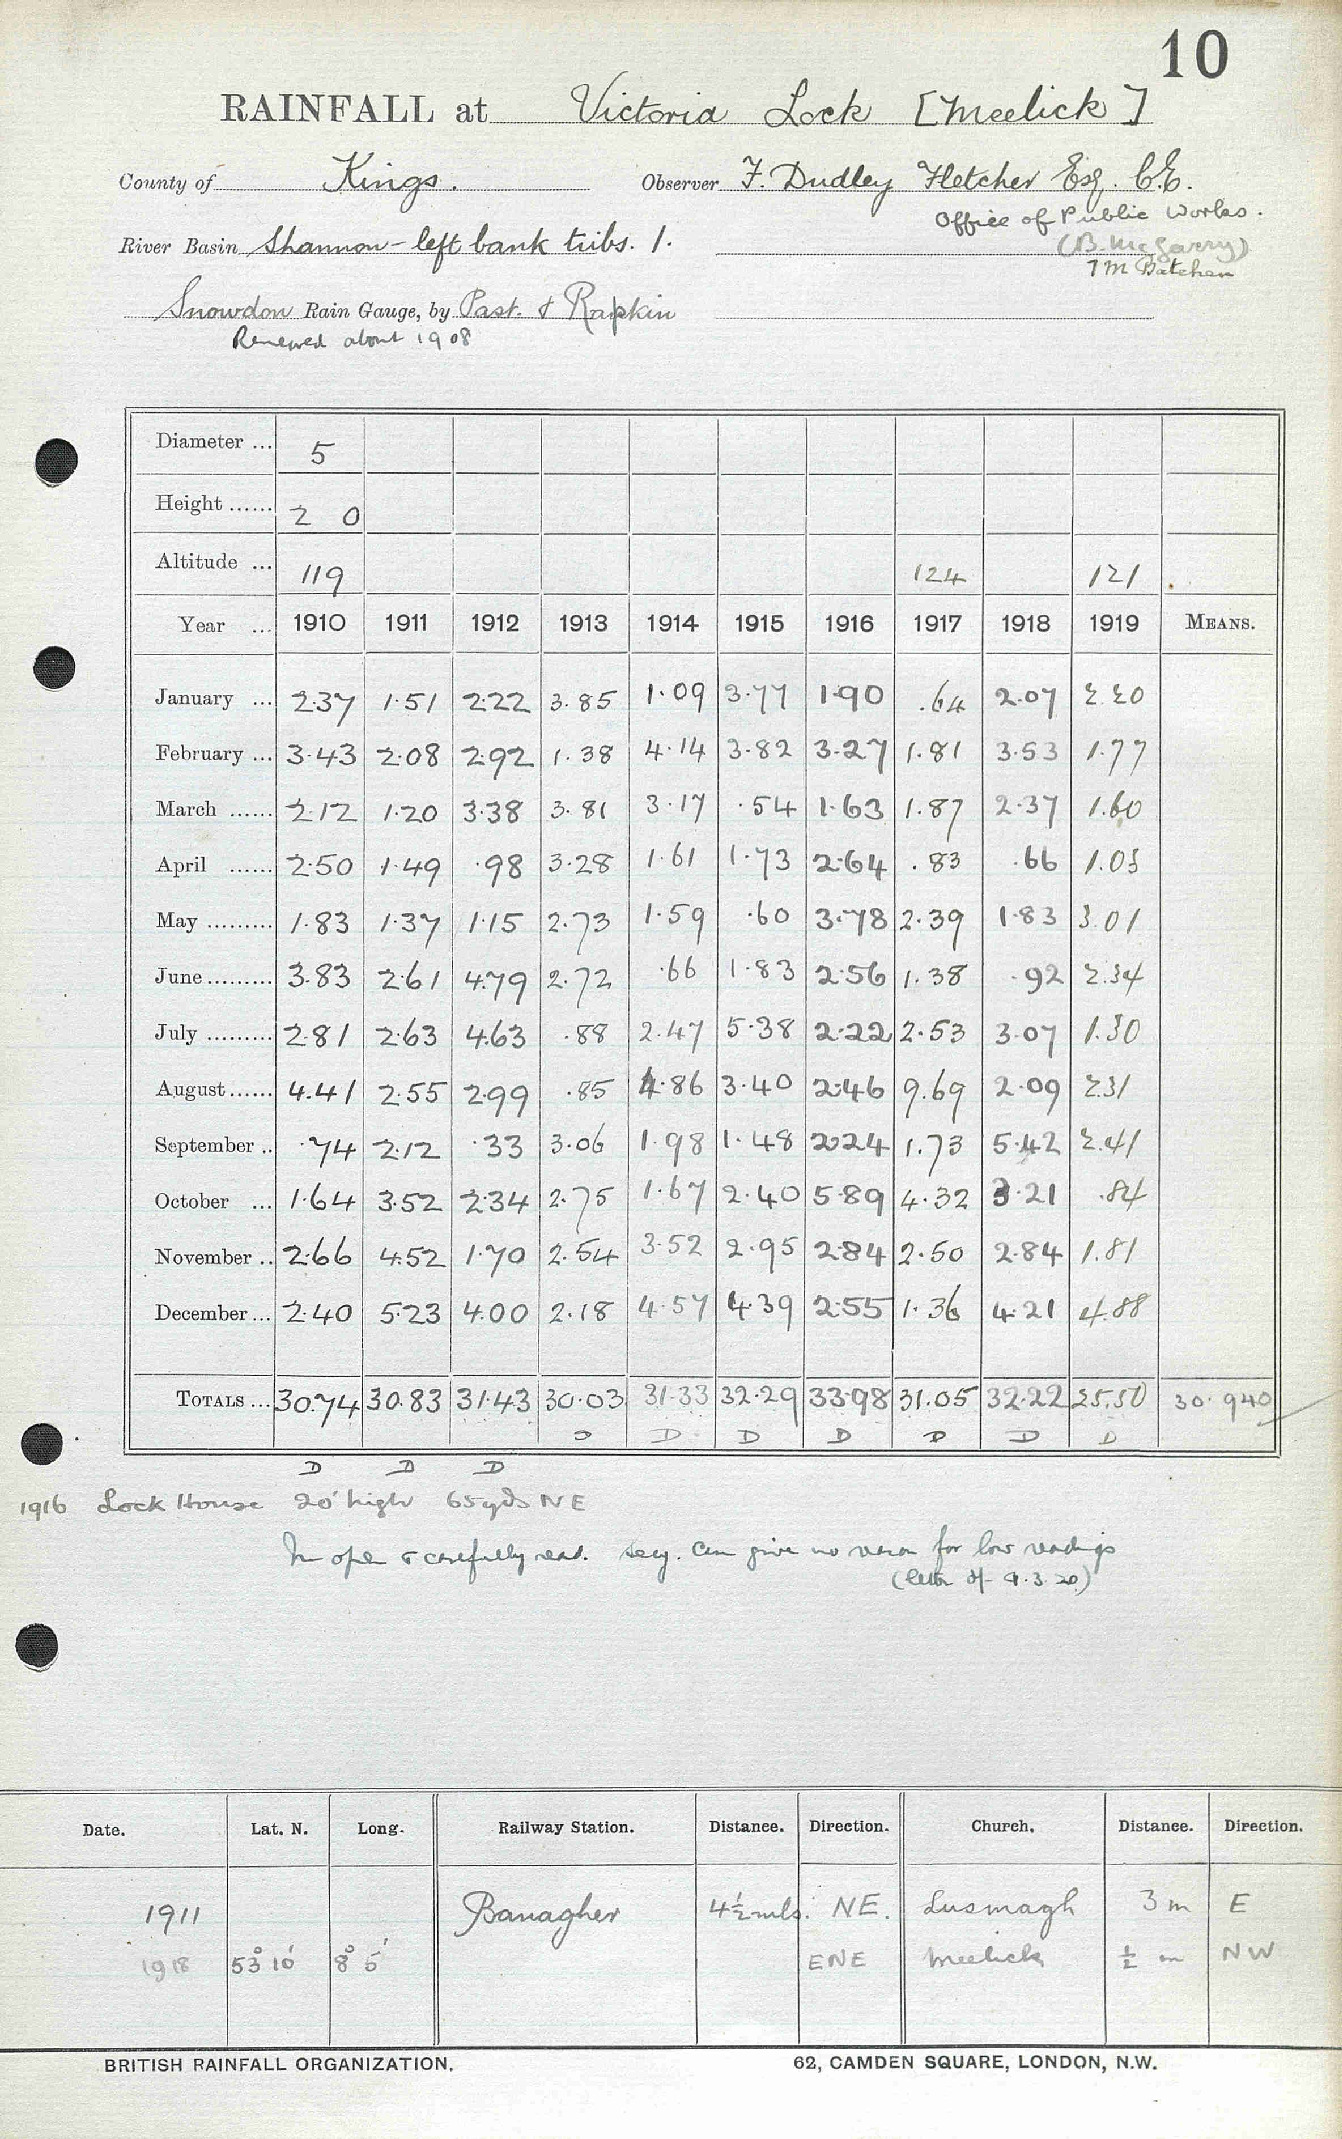 10
RAINFALL at Victoria Lock [Meelick]
County of Kings. Observer F. Dudley Fletcher Esq. C.E.
Office of Public Works.
River Basin Shannon - left bank tribs. 1. (B. McGaverry)
Snowdon Rain Gauge, by Past. & Rapkin
Renewed about 1908
Diameter ... 5
Height ...... 2 0
Altitude ... 119 124 121
Year ... 1910 1911 1912 1913 1914 1915 1916 1917 1918 1919 MEANS.
January ... 2.37 1.51 2.22 3.85 1.09 3.77 1.90 .64 2.07 2.20
February ... 3.43 2.08 2.92 1.38 4.14 3.82 3.27 1.81 3.53 1.77
March ...... 2.12 1.20 3.38 3.81 3.17 .54 1.63 1.87 2.37 1.60
April ...... 2.50 1.49 .98 3.28 1.61 1.73 2.64 .83 .66 1.03
May ......... 1.83 1.37 1.15 2.73 1.59 .60 3.78 2.39 1.83 3.01
June ......... 3.83 2.61 4.79 2.72 .66 1.83 2.56 1.38 .92 2.34
July ......... 2.81 2.63 4.63 .88 2.47 5.38 2.22 2.53 3.07 1.30
August ...... 4.41 2.55 2.99 .85 4.86 3.40 2.46 9.69 2.09 2.31
September .. .74 2.12 .33 3.06 1.98 1.48 2.24 1.73 5.42 2.41
October ... 1.64 3.52 2.34 2.75 1.67 2.40 5.89 4.32 3.21 .84
November .. 2.66 4.52 1.70 2.54 3.52 2.95 2.84 2.50 2.84 1.81
December ... 2.40 5.23 4.00 2.18 4.57 4.39 2.55 1.36 4.21 4.88
TOTALS ... 30.74 30.83 31.43 30.03 31.33 32.29 33.98 31.05 32.22 25.50 30.940
D D D D D D D
D D D
1916 Lock House 20' high 65 yds NE
In open & carefully read. Secy. can give no reason for low readings
(letter of 9.3.20)
Date. Lat. N. Long. Railway Station. Distance. Direction. Church. Distance. Direction.
1911 Banagher 4½ mls. NE. Lusmagh 3 m E
1918 53° 10' 8° 5' ENE Meelick ½ m NW
BRITISH RAINFALL ORGANIZATION. 62, CAMDEN SQUARE, LONDON, N.W.